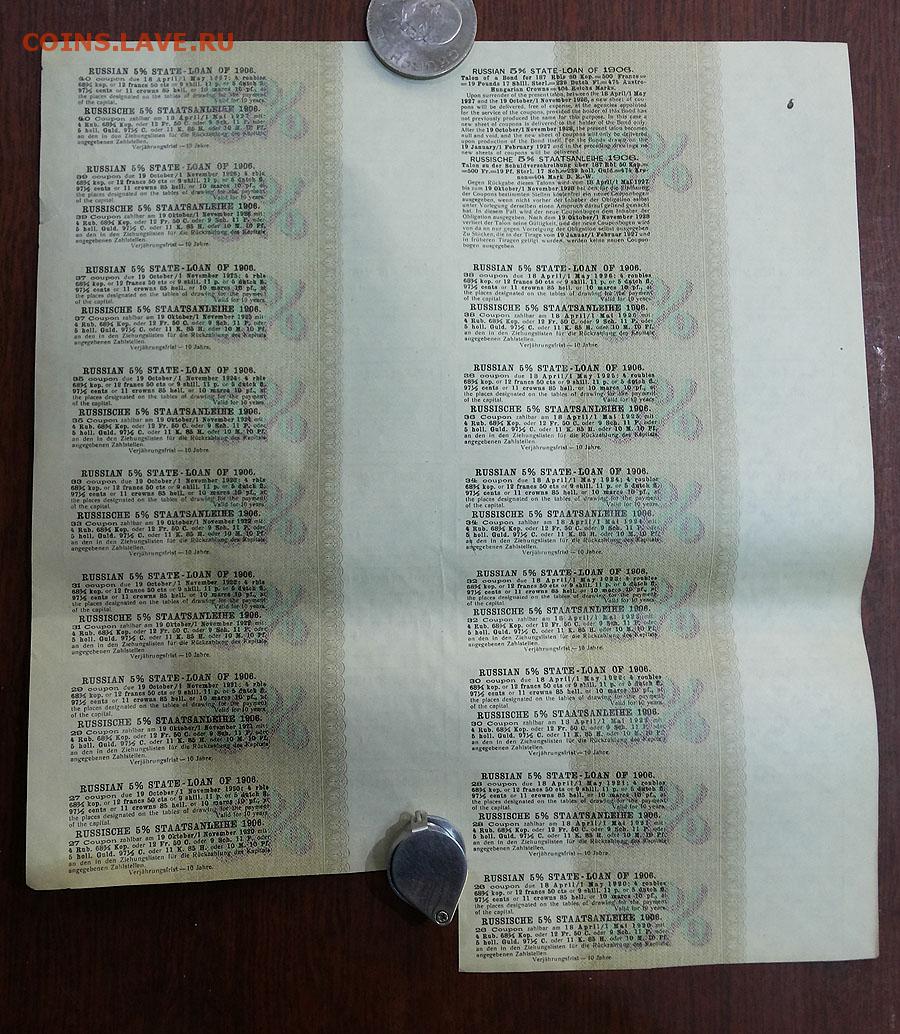 COINS.LAVE.RU
RUSSIAN 5% STATE-LOAN OF 1906.
40 coupon due 18 April/1 May 1927; 4 roubles
68¾ kop. or 12 francs 50 cts or 9 shill. 11 p. or 5 dutch fl.
97½ cents or 11 crowns 85 hell. or 10 marcs 10 pf., at
the places designated on the tables of drawing for the payment
of the capital. Valid for 10 years.
RUSSISCHE 5% STAATSANLEIHE 1906.
40 Coupon zahlbar am 18 April/1 Mai 1927 mit:
4 Rub. 68¾ Kop. oder 12 Fr. 50 C. oder 9 Sch. 11 P. oder
5 holl. Guld. 97½ C. oder 11 K. 85 H. oder 10 M. 10 Pf.
an den in den Ziehungslisten für die Rückzahlung des Kapitals
angegebenen Zahlstellen.
Verjährungsfrist — 10 Jahre.
RUSSIAN 5% STATE-LOAN OF 1906.
39 coupon due 19 October/1 November 1926; 4 rbls
68¾ kop. or 12 francs 50 cts or 9 shill. 11 p. or 5 dutch fl.
97½ cents or 11 crowns 85 hell. or 10 marcs 10 pf., at
the places designated on the tables of drawing for the payment
of the capital. Valid for 10 years.
RUSSISCHE 5% STAATSANLEIHE 1906.
39 Coupon zahlbar am 19 Oktober/1 November 1926 mit:
4 Rub. 68¾ Kop. oder 12 Fr. 50 C. oder 9 Sch. 11 P. oder
5 holl. Guld. 97½ C. oder 11 K. 85 H. oder 10 M. 10 Pf.
an den in den Ziehungslisten für die Rückzahlung des Kapitals
angegebenen Zahlstellen.
Verjährungsfrist — 10 Jahre.
RUSSIAN 5% STATE-LOAN OF 1906.
37 coupon due 19 October/1 November 1925; 4 rbls
68¾ kop. or 12 francs 50 cts or 9 shill. 11 p. or 5 dutch fl.
97½ cents or 11 crowns 85 hell. or 10 marcs 10 pf., at
the places designated on the tables of drawing for the payment
of the capital. Valid for 10 years.
RUSSISCHE 5% STAATSANLEIHE 1906.
37 Coupon zahlbar am 19 Oktober/1 November 1925 mit:
4 Rub. 68¾ Kop. oder 12 Fr. 50 C. oder 9 Sch. 11 P. oder
5 holl. Guld. 97½ C. oder 11 K. 85 H. oder 10 M. 10 Pf.
an den in den Ziehungslisten für die Rückzahlung des Kapitals
angegebenen Zahlstellen.
Verjährungsfrist — 10 Jahre.
RUSSIAN 5% STATE-LOAN OF 1906.
35 coupon due 19 October/1 November 1924; 4 rbls
68¾ kop. or 12 francs 50 cts or 9 shill. 11 p. or 5 dutch fl.
97½ cents or 11 crowns 85 hell. or 10 marcs 10 pf., at
the places designated on the tables of drawing for the payment
of the capital. Valid for 10 years.
RUSSISCHE 5% STAATSANLEIHE 1906.
35 Coupon zahlbar am 19 Oktober/1 November 1924 mit:
4 Rub. 68¾ Kop. oder 12 Fr. 50 C. oder 9 Sch. 11 P. oder
5 holl. Guld. 97½ C. oder 11 K. 85 H. oder 10 M. 10 Pf.
an den in den Ziehungslisten für die Rückzahlung des Kapitals
angegebenen Zahlstellen.
Verjährungsfrist — 10 Jahre.
RUSSIAN 5% STATE-LOAN OF 1906.
33 coupon due 19 October/1 November 1923; 4 rbls
68¾ kop. or 12 francs 50 cts or 9 shill. 11 p. or 5 dutch fl.
97½ cents or 11 crowns 85 hell. or 10 marcs 10 pf., at
the places designated on the tables of drawing for the payment
of the capital. Valid for 10 years.
RUSSISCHE 5% STAATSANLEIHE 1906.
33 Coupon zahlbar am 19 Oktober/1 November 1923 mit:
4 Rub. 68¾ Kop. oder 12 Fr. 50 C. oder 9 Sch. 11 P. oder
5 holl. Guld. 97½ C. oder 11 K. 85 H. oder 10 M. 10 Pf.
an den in den Ziehungslisten für die Rückzahlung des Kapitals
angegebenen Zahlstellen.
Verjährungsfrist — 10 Jahre.
RUSSIAN 5% STATE-LOAN OF 1906.
31 coupon due 19 October/1 November 1922; 4 rbls
68¾ kop. or 12 francs 50 cts or 9 shill. 11 p. or 5 dutch fl.
97½ cents or 11 crowns 85 hell. or 10 marcs 10 pf., at
the places designated on the tables of drawing for the payment
of the capital. Valid for 10 years.
RUSSISCHE 5% STAATSANLEIHE 1906.
31 Coupon zahlbar am 19 Oktober/1 November 1922 mit:
4 Rub. 68¾ Kop. oder 12 Fr. 50 C. oder 9 Sch. 11 P. oder
5 holl. Guld. 97½ C. oder 11 K. 85 H. oder 10 M. 10 Pf.
an den in den Ziehungslisten für die Rückzahlung des Kapitals
angegebenen Zahlstellen.
Verjährungsfrist — 10 Jahre.
RUSSIAN 5% STATE-LOAN OF 1906.
29 coupon due 19 October/1 November 1921; 4 rbls
68¾ kop. or 12 francs 50 cts or 9 shill. 11 p. or 5 dutch fl.
97½ cents or 11 crowns 85 hell. or 10 marcs 10 pf., at
the places designated on the tables of drawing for the payment
of the capital. Valid for 10 years.
RUSSISCHE 5% STAATSANLEIHE 1906.
29 Coupon zahlbar am 19 Oktober/1 November 1921 mit:
4 Rub. 68¾ Kop. oder 12 Fr. 50 C. oder 9 Sch. 11 P. oder
5 holl. Guld. 97½ C. oder 11 K. 85 H. oder 10 M. 10 Pf.
an den in den Ziehungslisten für die Rückzahlung des Kapitals
angegebenen Zahlstellen.
Verjährungsfrist — 10 Jahre.
RUSSIAN 5% STATE-LOAN OF 1906.
27 coupon due 19 October/1 November 1920; 4 rbls
68¾ kop. or 12 francs 50 cts or 9 shill. 11 p. or 5 dutch fl.
97½ cents or 11 crowns 85 hell. or 10 marcs 10 pf., at
the places designated on the tables of drawing for the payment
of the capital. Valid for 10 years.
RUSSISCHE 5% STAATSANLEIHE 1906.
27 Coupon zahlbar am 19 Oktober/1 November 1920 mit:
4 Rub. 68¾ Kop. oder 12 Fr. 50 C. oder 9 Sch. 11 P. oder
5 holl. Guld. 97½ C. oder 11 K. 85 H. oder 10 M. 10 Pf.
an den in den Ziehungslisten für die Rückzahlung des Kapitals
angegebenen Zahlstellen.
Verjährungsfrist — 10 Jahre.
RUSSIAN 5% STATE-LOAN OF 1906.
Talon of a Bond for 187 Rbls 50 Kop.=500 Francs=
=19 Pounds 17 Shill. Sterl.=239 Dutch Fl.=475 Austro-
Hungarian Crowns=404 Reichs Marks.
Upon surrender of the present talon, between the 18 April/1 May
1927 and the 19 October/1 November 1928, a new sheet of cou-
pons will be delivered, free of expense, at the agencies appointed
for the service of the coupons, provided the holder of this Bond has
not previously produced the same for this purpose. In this case a
new sheet of coupons is delivered to the holder of the Bond only.
After the 19 October/1 November 1928, the present talon becomes
null and void, and the new sheet of coupons will only be delivered
upon production of the Bond itself. For the Bonds drawn on the
19 January/1 February 1927 and in the preceding drawings no
new sheets of coupons will be delivered.
RUSSISCHE 5% STAATSANLEIHE 1906.
Talon zu der Schuldverschreibung über 187 Rbl 50 Kop.=
=500 Fr.=19 Pf. Sterl. 17 Sch.=239 holl. Guld.=475 Kro-
nen=404 Mark D. R.-W.
Gegen Rückgabe dieses Talons wird vom 18 April/1 Mai 1927
bis zum 19 Oktober/1 November 1928 bei den für die Einlösung
der Coupons bestimmten Stellen kostenfrei ein neuer Couponbogen
ausgegeben, wenn nicht vorher der Inhaber der Obligation selbst
unter Vorlegung derselben den Anspruch darauf geltend gemacht
hat. In diesem Fall wird der neue Couponbogen dem Inhaber der
Obligation ausgegeben. Nach dem 19 Oktober/1 November 1928
verliert der Talon seine Giltigkeit und der neue Couponbogen
wird von da an nur gegen Vorzeigung der Obligation selbst ausgegeben.
Zu Stücken, die in der Tirage vom 19 Januar/1 Februar 1927 und
in früheren Tiragen getilgt wurden, werden keine neuen Coupon-
bogen ausgegeben.
RUSSIAN 5% STATE-LOAN OF 1906.
38 coupon due 18 April/1 May 1926; 4 roubles
68¾ kop. or 12 francs 50 cts or 9 shill. 11 p. or 5 dutch fl.
97½ cents or 11 crowns 85 hell. or 10 marcs 10 pf., at
the places designated on the tables of drawing for the payment
of the capital. Valid for 10 years.
RUSSISCHE 5% STAATSANLEIHE 1906.
38 Coupon zahlbar am 18 April/1 Mai 1926 mit:
4 Rub. 68¾ Kop. oder 12 Fr. 50 C. oder 9 Sch. 11 P. oder
5 holl. Guld. 97½ C. oder 11 K. 85 H. oder 10 M. 10 Pf.
an den in den Ziehungslisten für die Rückzahlung des Kapitals
angegebenen Zahlstellen.
Verjährungsfrist — 10 Jahre.
RUSSIAN 5% STATE-LOAN OF 1906.
36 coupon due 18 April/1 May 1925; 4 roubles
68¾ kop. or 12 francs 50 cts or 9 shill. 11 p. or 5 dutch fl.
97½ cents or 11 crowns 85 hell. or 10 marcs 10 pf., at
the places designated on the tables of drawing for the payment
of the capital. Valid for 10 years.
RUSSISCHE 5% STAATSANLEIHE 1906.
36 Coupon zahlbar am 18 April/1 Mai 1925 mit:
4 Rub. 68¾ Kop. oder 12 Fr. 50 C. oder 9 Sch. 11 P. oder
5 holl. Guld. 97½ C. oder 11 K. 85 H. oder 10 M. 10 Pf.
an den in den Ziehungslisten für die Rückzahlung des Kapitals
angegebenen Zahlstellen.
Verjährungsfrist — 10 Jahre.
RUSSIAN 5% STATE-LOAN OF 1906.
34 coupon due 18 April/1 May 1924; 4 roubles
68¾ kop. or 12 francs 50 cts or 9 shill. 11 p. or 5 dutch fl.
97½ cents or 11 crowns 85 hell. or 10 marcs 10 pf., at
the places designated on the tables of drawing for the payment
of the capital. Valid for 10 years.
RUSSISCHE 5% STAATSANLEIHE 1906.
34 Coupon zahlbar am 18 April/1 Mai 1924 mit:
4 Rub. 68¾ Kop. oder 12 Fr. 50 C. oder 9 Sch. 11 P. oder
5 holl. Guld. 97½ C. oder 11 K. 85 H. oder 10 M. 10 Pf.
an den in den Ziehungslisten für die Rückzahlung des Kapitals
angegebenen Zahlstellen.
Verjährungsfrist — 10 Jahre.
RUSSIAN 5% STATE-LOAN OF 1906.
32 coupon due 18 April/1 May 1923; 4 roubles
68¾ kop. or 12 francs 50 cts or 9 shill. 11 p. or 5 dutch fl.
97½ cents or 11 crowns 85 hell. or 10 marcs 10 pf., at
the places designated on the tables of drawing for the payment
of the capital. Valid for 10 years.
RUSSISCHE 5% STAATSANLEIHE 1906.
32 Coupon zahlbar am 18 April/1 Mai 1923 mit:
4 Rub. 68¾ Kop. oder 12 Fr. 50 C. oder 9 Sch. 11 P. oder
5 holl. Guld. 97½ C. oder 11 K. 85 H. oder 10 M. 10 Pf.
an den in den Ziehungslisten für die Rückzahlung des Kapitals
angegebenen Zahlstellen.
Verjährungsfrist — 10 Jahre.
RUSSIAN 5% STATE-LOAN OF 1906.
30 coupon due 18 April/1 May 1922; 4 roubles
68¾ kop. or 12 francs 50 cts or 9 shill. 11 p. or 5 dutch fl.
97½ cents or 11 crowns 85 hell. or 10 marcs 10 pf., at
the places designated on the tables of drawing for the payment
of the capital. Valid for 10 years.
RUSSISCHE 5% STAATSANLEIHE 1906.
30 Coupon zahlbar am 18 April/1 Mai 1922 mit:
4 Rub. 68¾ Kop. oder 12 Fr. 50 C. oder 9 Sch. 11 P. oder
5 holl. Guld. 97½ C. oder 11 K. 85 H. oder 10 M. 10 Pf.
an den in den Ziehungslisten für die Rückzahlung des Kapitals
angegebenen Zahlstellen.
Verjährungsfrist — 10 Jahre.
RUSSIAN 5% STATE-LOAN OF 1906.
28 coupon due 18 April/1 May 1921; 4 roubles
68¾ kop. or 12 francs 50 cts or 9 shill. 11 p. or 5 dutch fl.
97½ cents or 11 crowns 85 hell. or 10 marcs 10 pf., at
the places designated on the tables of drawing for the payment
of the capital. Valid for 10 years.
RUSSISCHE 5% STAATSANLEIHE 1906.
28 Coupon zahlbar am 18 April/1 Mai 1921 mit:
4 Rub. 68¾ Kop. oder 12 Fr. 50 C. oder 9 Sch. 11 P. oder
5 holl. Guld. 97½ C. oder 11 K. 85 H. oder 10 M. 10 Pf.
an den in den Ziehungslisten für die Rückzahlung des Kapitals
angegebenen Zahlstellen.
Verjährungsfrist — 10 Jahre.
RUSSIAN 5% STATE-LOAN OF 1906.
26 coupon due 18 April/1 May 1920; 4 roubles
68¾ kop. or 12 francs 50 cts or 9 shill. 11 p. or 5 dutch fl.
97½ cents or 11 crowns 85 hell. or 10 marcs 10 pf., at
the places designated on the tables of drawing for the payment
of the capital. Valid for 10 years.
RUSSISCHE 5% STAATSANLEIHE 1906.
26 Coupon zahlbar am 18 April/1 Mai 1920 mit:
4 Rub. 68¾ Kop. oder 12 Fr. 50 C. oder 9 Sch. 11 P. oder
5 holl. Guld. 97½ C. oder 11 K. 85 H. oder 10 M. 10 Pf.
an den in den Ziehungslisten für die Rückzahlung des Kapitals
angegebenen Zahlstellen.
Verjährungsfrist — 10 Jahre.